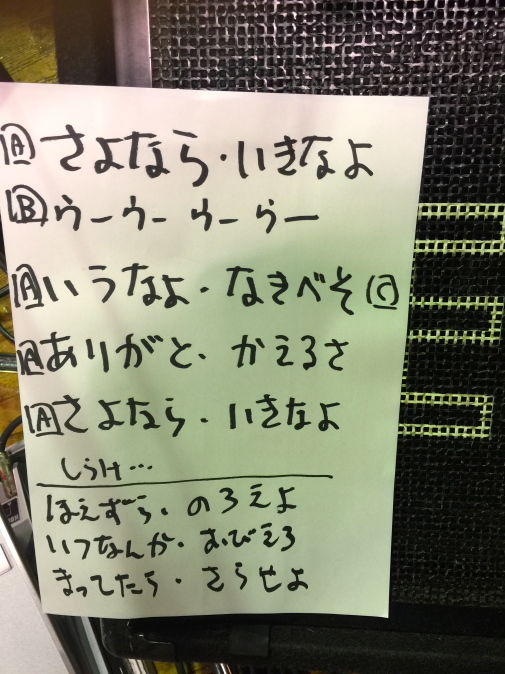 A さよなら・いきなよ
B ウーウー ウーラー
A いうなよ・なきべそ C
A ありがと、かえるさ
A さよなら・いきなよ
しらけ…
ほえずら・のろえよ
いつなんか・おびえろ
まってたら・さらせよ